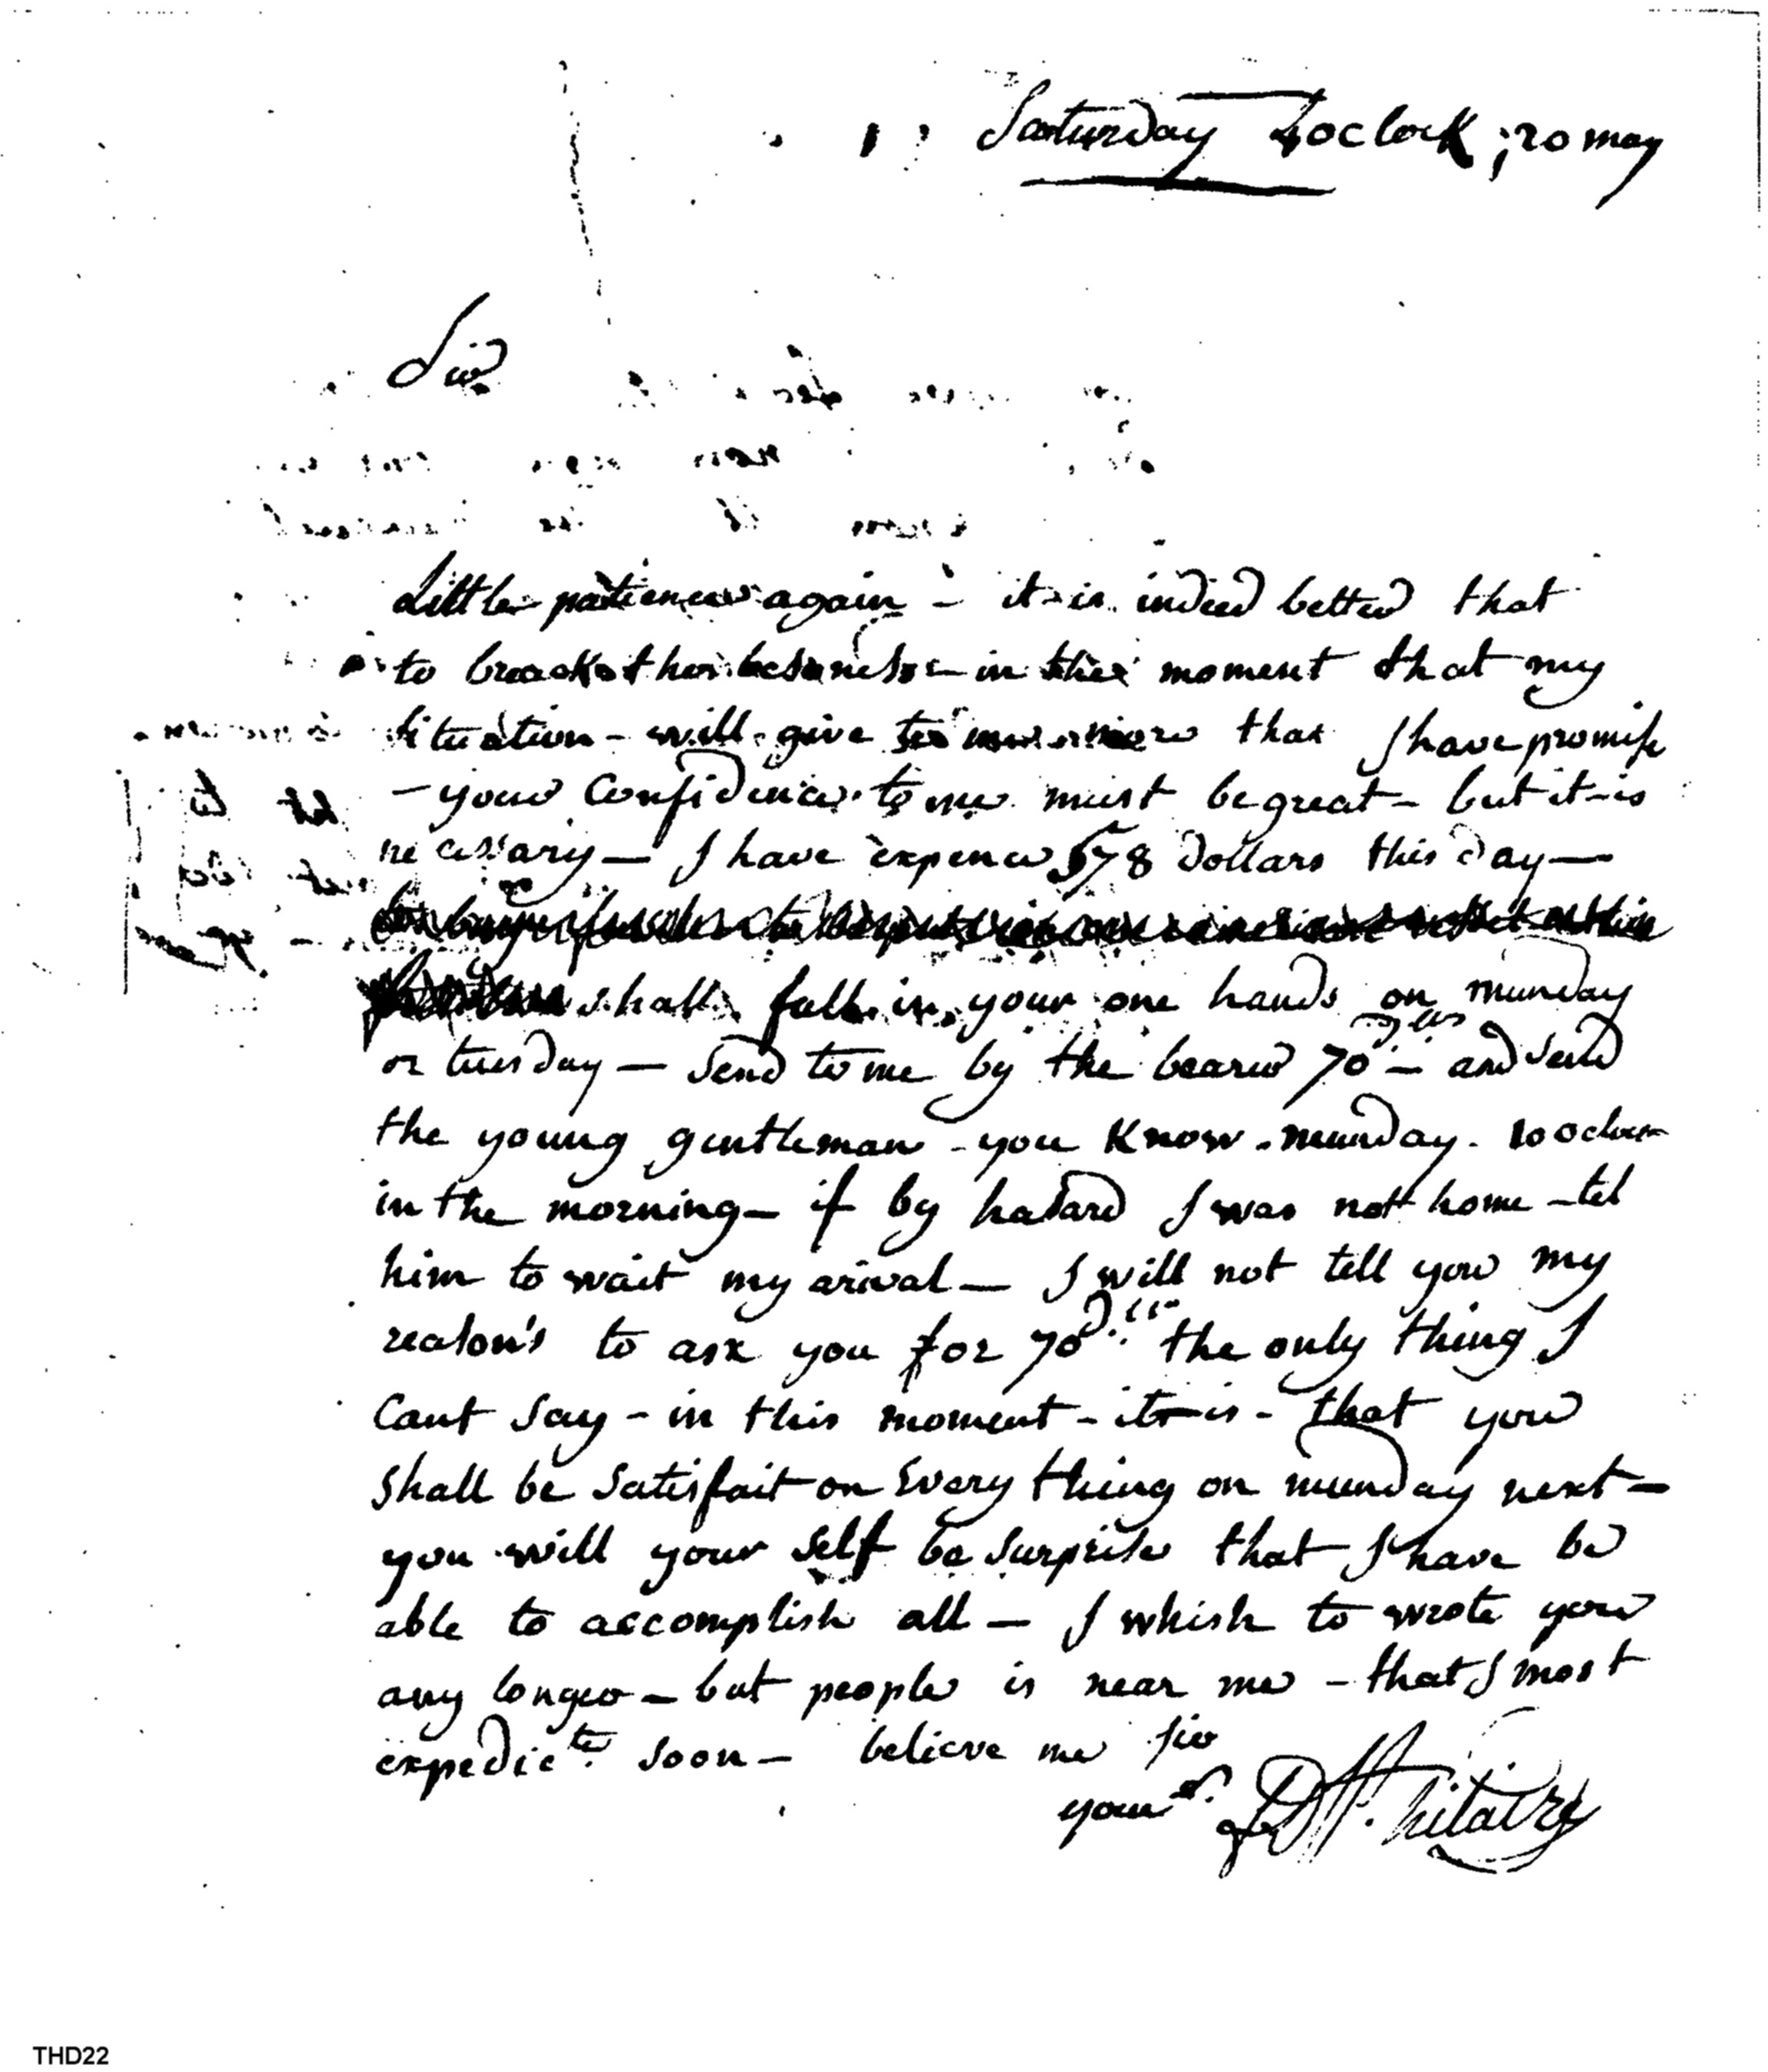 Saturday 7 oclock ; 20 may
Sir
Little patience again - it is indeed better that
to break the business - in the moment that my
situation - will give to me more that I have promise
- your Confidence to me must be great - but it is
necessary - I have expence 578 Dollars this day -
shall fall in your one hands on munday
or tuesday - Send to me by the bearer 70 - and send
the young gentleman - you Know - munday - 10 oclock
in the morning - if by hasard I was nott home - tel
him to wait my arival - I will not tell you my
reason's to ask you for 70 the only thing I
Cant Say - in this moment - it is - that you
Shall be Satisfait on Every thing on munday next -
you will your Self be Surprise that I have be
able to accomplish all - I whish to wrote you
any longer - but people is near me - that I most
expedicte soon - believe me Sir
your
THD22